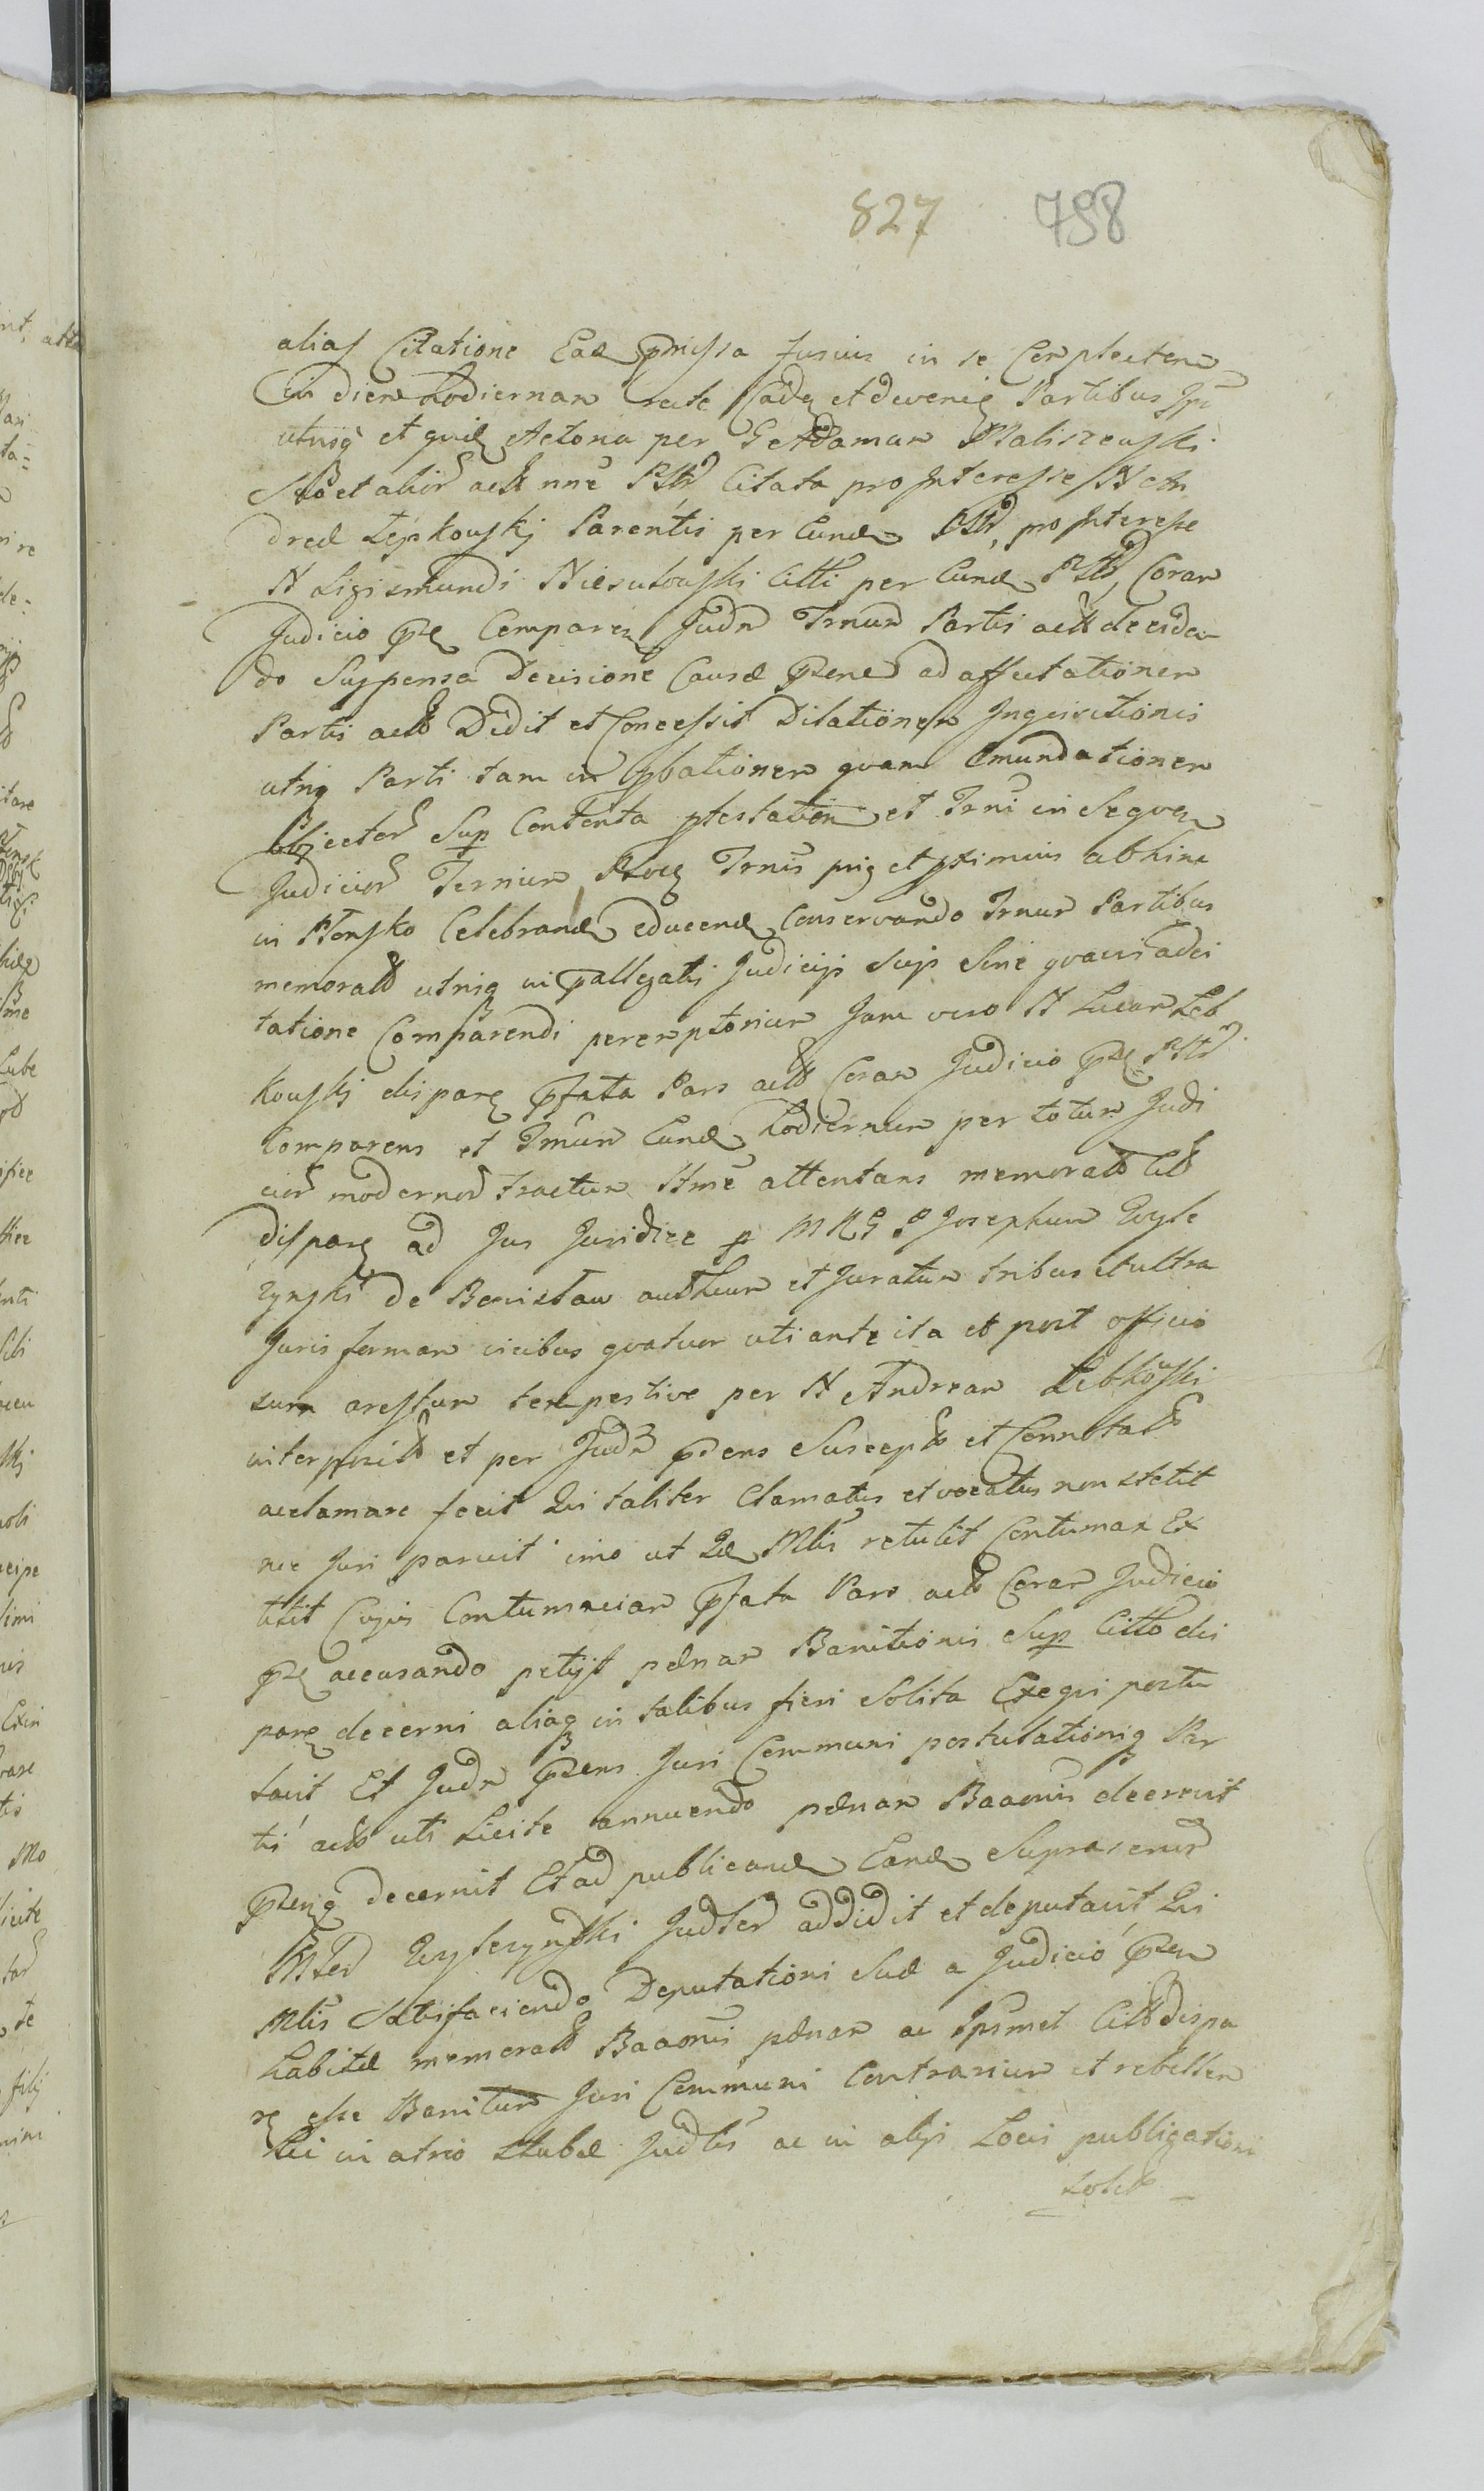 827 798
alias Citatione Ead pmissa fusius in se Complecten
in diem hodiernam recte Caden et deveniens Partibus Ipis
utrisq et quid Actorea per G Adamum Maliszewski
Suo et alior actt nne Pltr Citata pro Interesse N An
dreae Lepkowskj Parentis per Eund Pltr, pro Interesse
N Sigismundi Nieszutowski Citti per Eund Pltr, Coram
Judicio pn Comparen Judm Trnum Partis actt deciden
do Suspensa Decisione Causae psene ad affectationem
Partis actt Dedit et Concessit Dilationem Inquisitionis
utriq Parti tam in pbationem quam Emundationem
Objector Sup Contenta ptestation et Trni in Sequen
Judicior Ternum Trnis priq et pximius abhinc
in Płońsko Celebrand educend Conservando Trnum Partibus
memoratt utriq in pallegatis Judicijs Suis Sine quavis adci
tatione Comparendi peremptorium Jam vero N Lucam Leb
kowskj disparen pfata Pars actt Coram Judicio pn Pltr
Comparens et Trnum Eund hodiernum per totum Judi
cior modernor tractum Ittme attentans memoratt Citt
disparen ad Jus Juridice p MRG P Josephum
de authum et Juratum tribus et ultra
Juris formam vicibus quatuor uti ante ita et post officio
sum arestum tempestive per N Andream Lebkowski
interposit et per Judm psens Suscept et Connotatt
acclamare fecit Qui taliter Clamatus et vocatus non stetit
nec Juri paruit imo ut Id Mlis retulit Contumax Ex
titit Cujus Contumaciam pfata Pars actt Coram Judicio
pn accusando petijt paenam Banitionis Sup Citto dis
paren decerni aliaq in talibus fieri Solita Exequi postu
lavit Et Judm psens Juri Communi postulationiq Par
tis actt uti Licite annuendo paenam Baaonis decrevit
psensq decernit Et ad publicand Eand Suprascript
Mlem Judlem addidit et deputavit Qui
Mlis Satisfaciendo Deputationi Suae a Judicio psen
habitae memoratt Baaonis paenam ac Ipsimet Citt dispa
ren esse Banitum Juri Communi Contrarium et rebellem
hic in atrio Stubae Judlis ac in alijs Locis publigationi
Solit